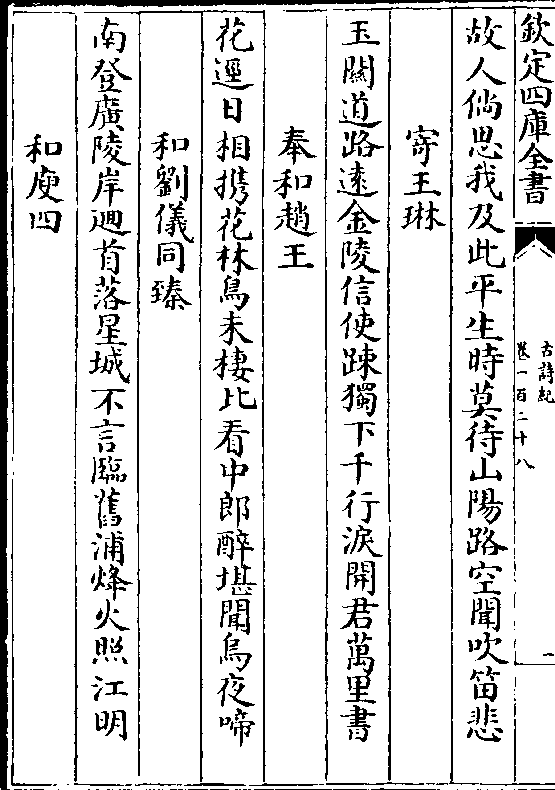 欽定四庫全書
古詩紀
卷一百二十八
一
故人倘思我及此平生時莫待山陽路空聞吹笛悲
寄王琳
玉關道路遠金陵信使踈獨下千行淚開君萬里書
奉和趙王
花逕日相携花林鳥未棲比看中郎醉堪聞烏夜啼
和劉儀同臻
南登廣陵岸廻首落星城不言臨舊浦烽火照江明
和庾四